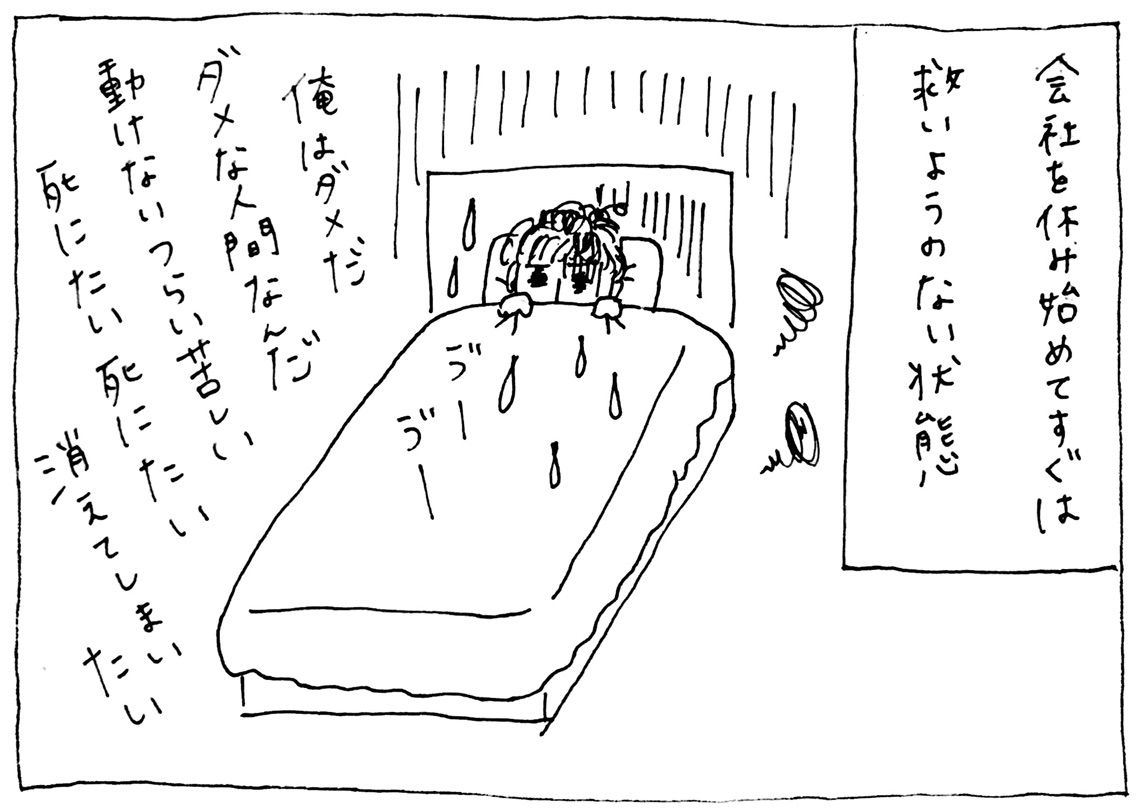 会社を休み始めてすぐは
救いようのない状態
俺はダメだ
ダメな人間なんだ
動けないつらい苦しい
死にたい死にたい
消えてしまいたい
ゔー
ゔー